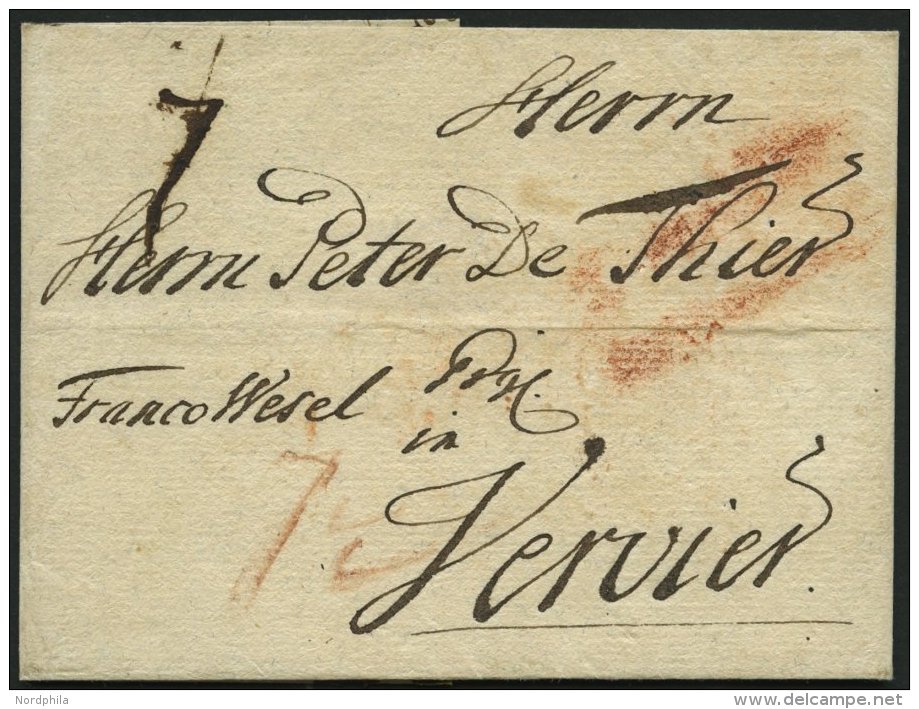 Herrn
7
Herrn Peter De Thier
Franco Wesel
in
Vervier.
Nordphila
www.delcampe.net